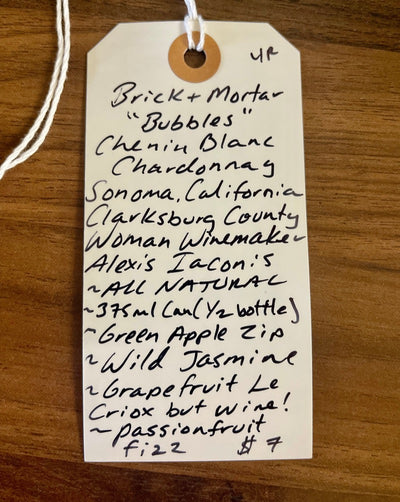 4R
Brick + Mortar
"Bubbles"
Chenin Blanc
Chardonnay
Sonoma, California
Clarksburg County
Woman Winemaker
Alexis Iaconis
~ALL NATURAL
~375ml Can(½ bottle)
~Green Apple Zip
~Wild Jasmine
~Grapefruit Le
Criox but wine!
~passionfruit
fizz $7